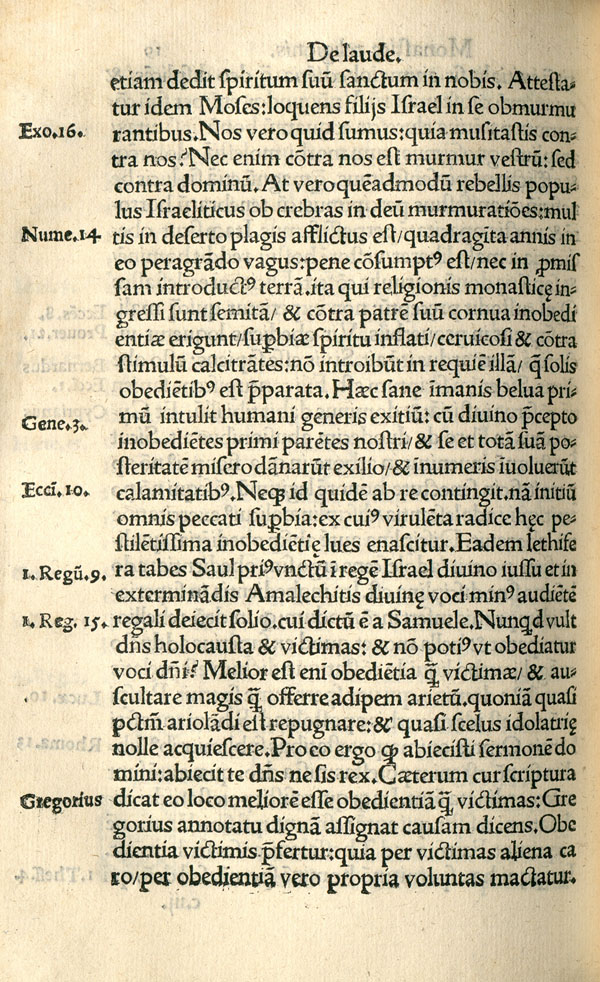 De laude.
etiam dedit spiritum suū sanctum in nobis. Attesta-
tur idem Moses: loquens filijs Israel in se obmurmu
Exo.16. rantibus. Nos vero quid sumus: quia musitastis con-
tra nos? Nec enim cōtra nos est murmur vestrū: sed
contra dominū. At vero quēadmodū rebellis popu-
lus Israeliticus ob crebras in deū murmuratiōes: mul
Nume.14 tis in deserto plagis afflictus est/ quadragīta annis in
eo peragrādo vagus: pene cōsumptꝰ est/ nec in ꝓmis
sam introductꝰ terrā. ita qui religionis monasticę in-
gressi sunt semitā/ & cōtra patrē suū cornua inobedi
entiæ erigunt/ suꝑbiæ spiritu inflati/ ceruicosi & cōtra
stimulū calcitrātes: nō introibūt in requiē illā/ q̄ solis
obediētibꝰ est p̄parata. Hæc sane īmanis belua pri-
Gene.3. mū intulit humani generis exitiū: cū diuino p̄cepto
inobediētes primi parētes nostri/ & se et totā suā po-
steritatē misero dānarūt exilio/ & īnumeris īuoluerūt
Eccī.10. calamitatibꝰ. Neqꝫ id quidē ab re contingit. nā initiū
omnis peccati suꝑbia: ex cuiꝰ virulēta radice hęc pe-
stilētissima inobediētię lues enascitur. Eadem lethife
1. Regū.9. ra tabes Saul priꝰ vnctū ī regē Israel diuino iussu et in
exterminādis Amalechitis diuinę voci minꝰ audiētē
1. Reg. 15. regali deiecit solio. cui dictū ē a Samuele. Nunqd vult
dn̄s holocausta & victimas: & nō potiꝰ vt obediatur
voci dn̄i? Melior est enī obediētia q̄ victimæ/ & au-
scultare magis q̄ offerre adipem arietū. quoniā quasi
pctm̄ ariolādi est repugnare: & quasi scelus idolatrię
nolle acquiescere. Pro eo ergo qꝫ abiecisti sermonē do
mini: abiecit te dn̄s ne sis rex. Cæterum cur scriptura
Gregorius dicat eo loco meliorē esse obedientiā q̄ victimas: Gre
gorius annotatu dignā assignat causam dicens. Obe
dientia victimis p̄fertur: quia per victimas aliena ca
ro/ per obedientiā vero propria voluntas mactatur.